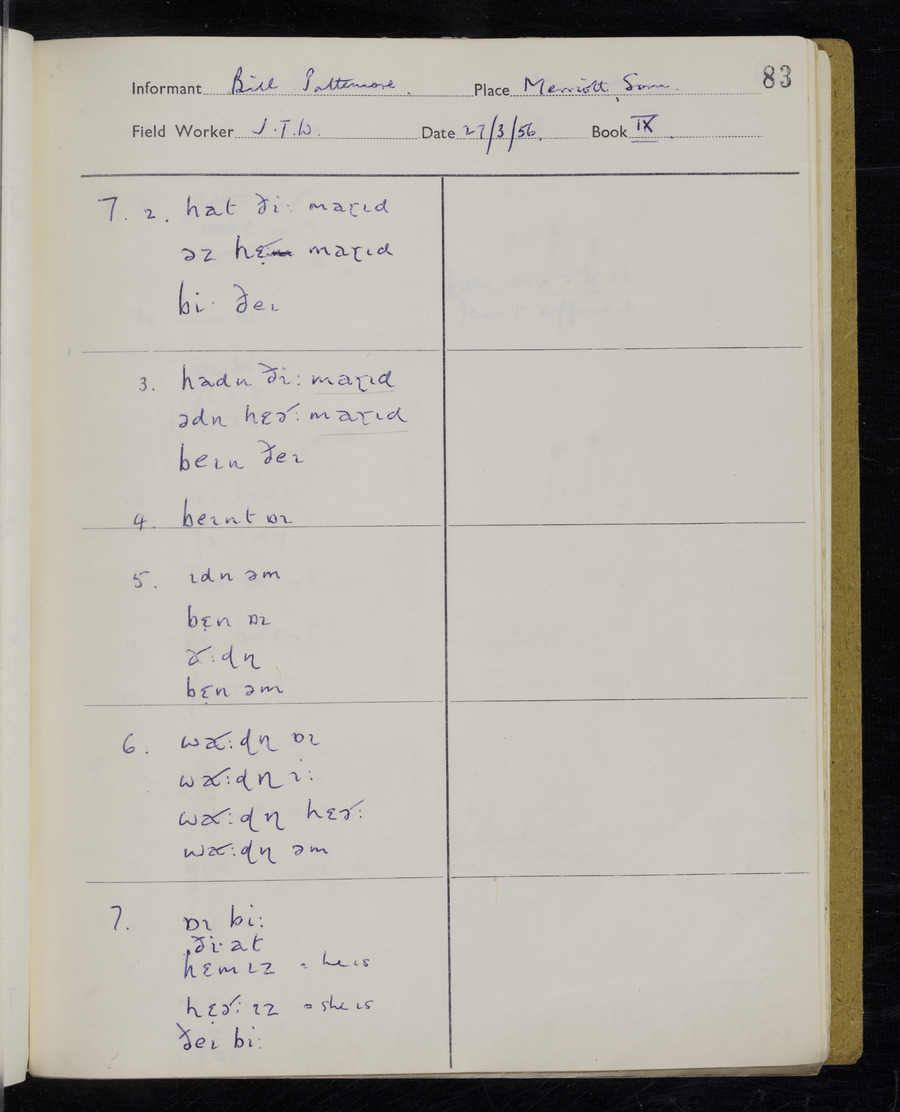 83
Informant Bill Pattemore. Place Merriott, Som.
Field Worker J.T.W. Date 27/3/56. Book IX.
7. 2. hat ði: maɽɪd
əz hɛ̣: maɽɪd
bi· ðeɪ
3. hadn ði: maɽɪd
ədn hɛɚ: maɽɪd
beɪn ðeɪ
4. beɪnt ɒɪ
5. ɪdn əm
bɛ̣n ɒɪ
ɚ:ɖɳ
bɛ̣n əm
6. wɚ:ɖɳ ɒɪ
wɚ:ɖɳ i:
wɚ:ɖɳ hɛɚ:
wɚ:ɖɳ əm
7. ɒɪ bi:
ði· at
hɛ̣m ɪz = he is
hɛ̣ɚ: ɪz = she is
ðeɪ bi: